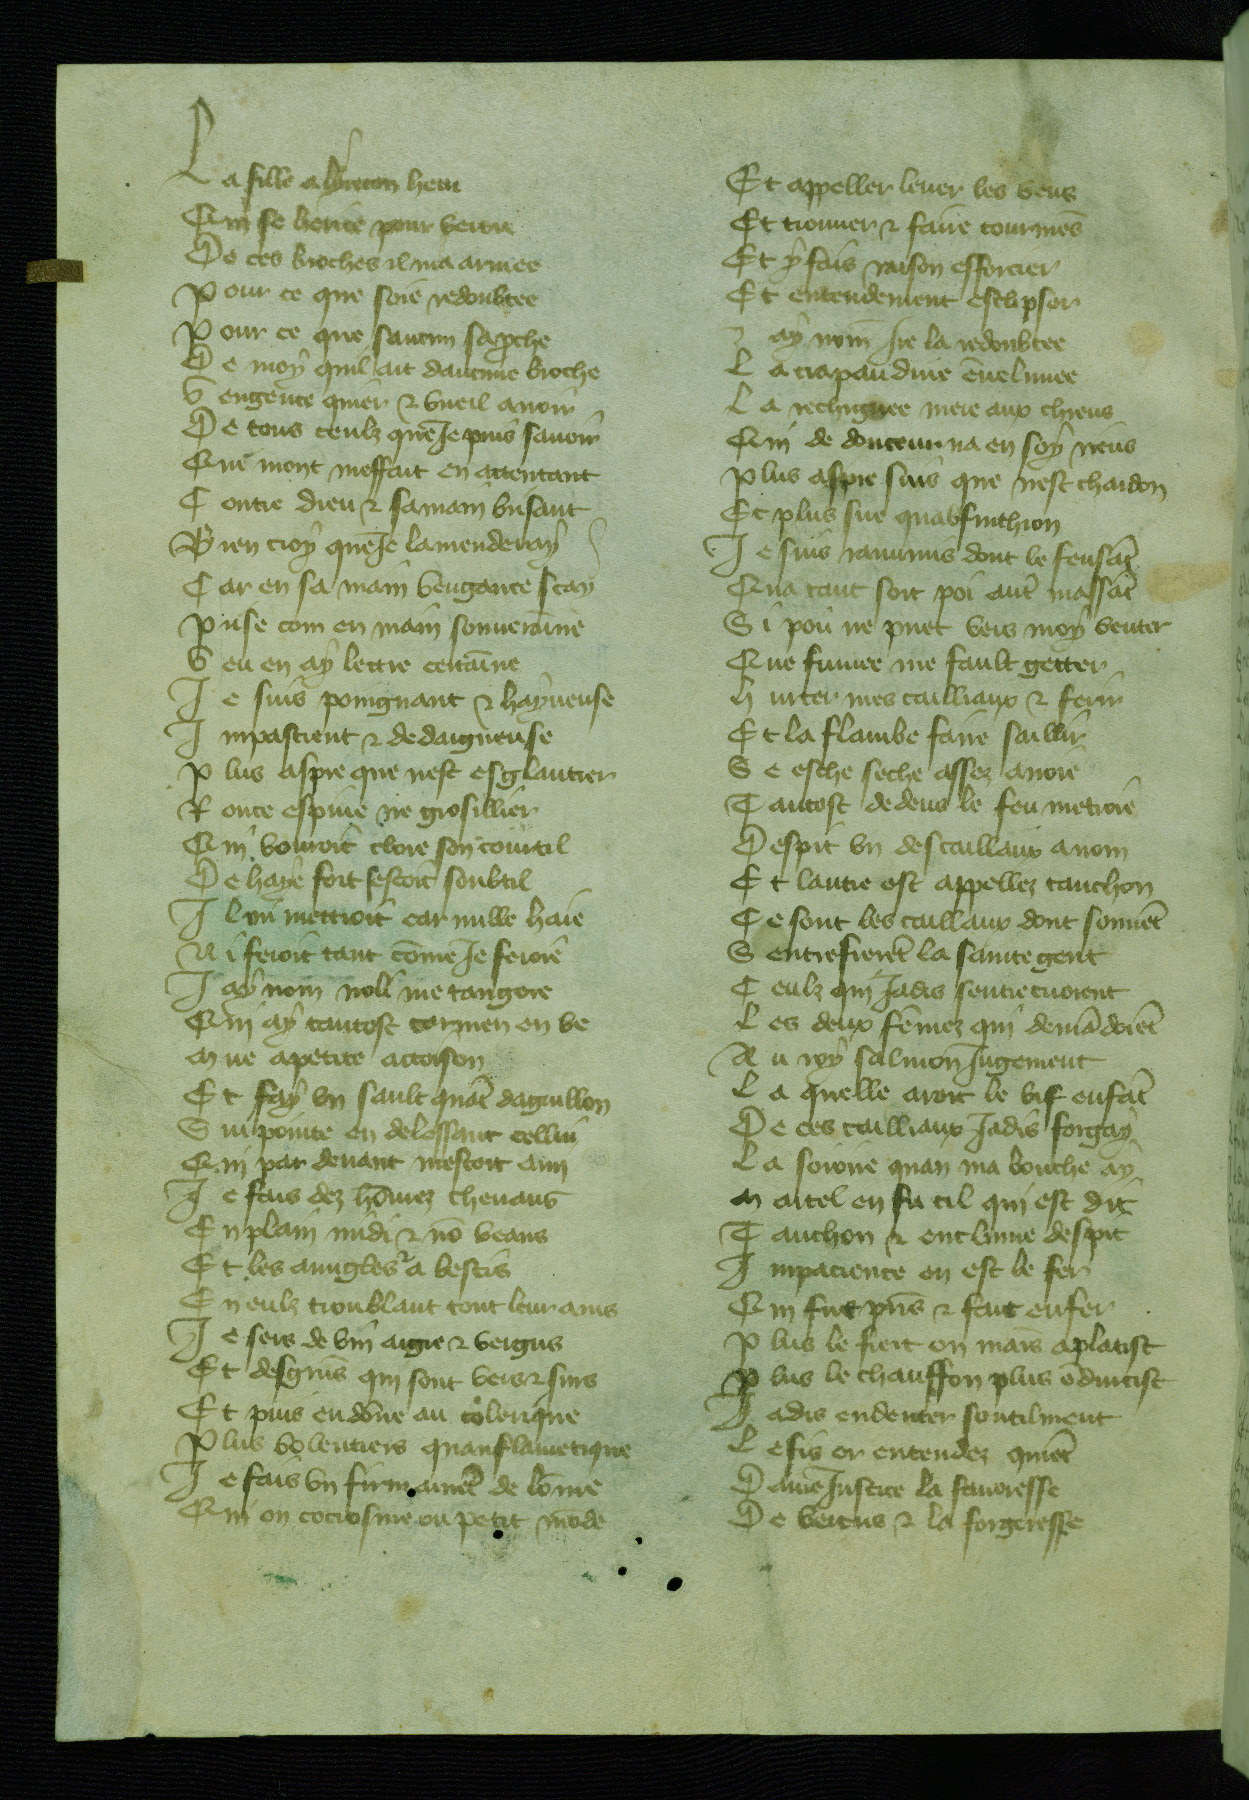 La fille a hericon heru
Qui se herice pour vertu
De ces broches il ma armee
Pour ce que soie redoubtee
Pour ce que saucun saproche
De moy quil ait daucune broche
Vengence quier & vueil avoir
De tous ceulz que Je puis savoir
Que mont meffait en attentant
Contre dieu & sa main usant
Bien croy que Je lamenderay
Car en sa main vengance scay
Prise com en main souveraine
Veu en ay lettre certaine
Je suis poingnant & hayneuse
Impascient & dedaigneuse
Plus aspre que nest esglantier
Ronce espine ne grosillier
Qui vouroit clore son courtil
De haye fort sestoit soubtil
Il mi mettroit car nulle haie
Ni feroit tant cōme Je feroie
Jay nom noli me tangere
Qui ay tantost tormen en ve
Mue a petite attoison
Et fay un sault quāt daguillon
Sui pointe en delessant cellui
Qui par devant mestoit ami
Je fais dez hōmez chevaus
En plain midi & nō veans
Et les avugles a bestis
En eulz troublant tout leur avis
Je sers de vin aigre & vergus
Et desgrūs qui sont vers & surs
Et puis en dōne au colerique
Plus volentiers quau flametique
Je fais un firmamēt de lōme
Qui ou cocrosme ou petit mōde
Et appeller lever les vens
Et tronner & faire tourmēs
Et y fais raison efforcier
Et entendement esclipser
Jay nom Ire la redoubtee
La crapaudine ēvelimee
La rechignee mere aux chiens
Qui de douceur na en soy riens
Plus aspre suis que nest chardon
Et plus sure quabsinthion
Je suis ramnus dont le feu sāt
Qua tant soit poi aut massāt
Si pou ne puet vers moy venter
Que fumee ne fault getter
Hurter mes cailliaux & ferir
Et la flambe faire saillir
Se esche seche assez avoie
Tantost dedens le feu metroie
Despit un des caillaux a nom
Et lautre est appellez tanchon
Ce sont les caillaux dont souvēt
Sentrefierēt la sainte gent
Ceulz qui Jadis sentretuoient
Les deux fēmez qui demādoiēt
Au roy salmon Jugement
La quelle avoit le vif enfāt
De ces cailliaux Jadis forgay
La soione quan ma bouche ay
Martel en fu cil qui est dit
Tanchon & enclume despit
Impacience en est le fer
Qui fut prīs & fait en fer
Plus le fiert on mais aplatist
Plus le chauffon plus ēdurcist
Jadis endenter soutilment
Le fis or entendez quiēt
Dame Justice la favoresse
De vertus & la forgeresse